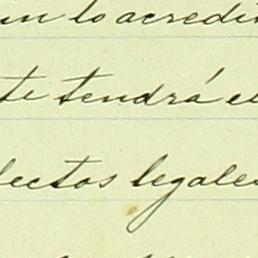 un lo acredi
te tendrá el
fectos legales